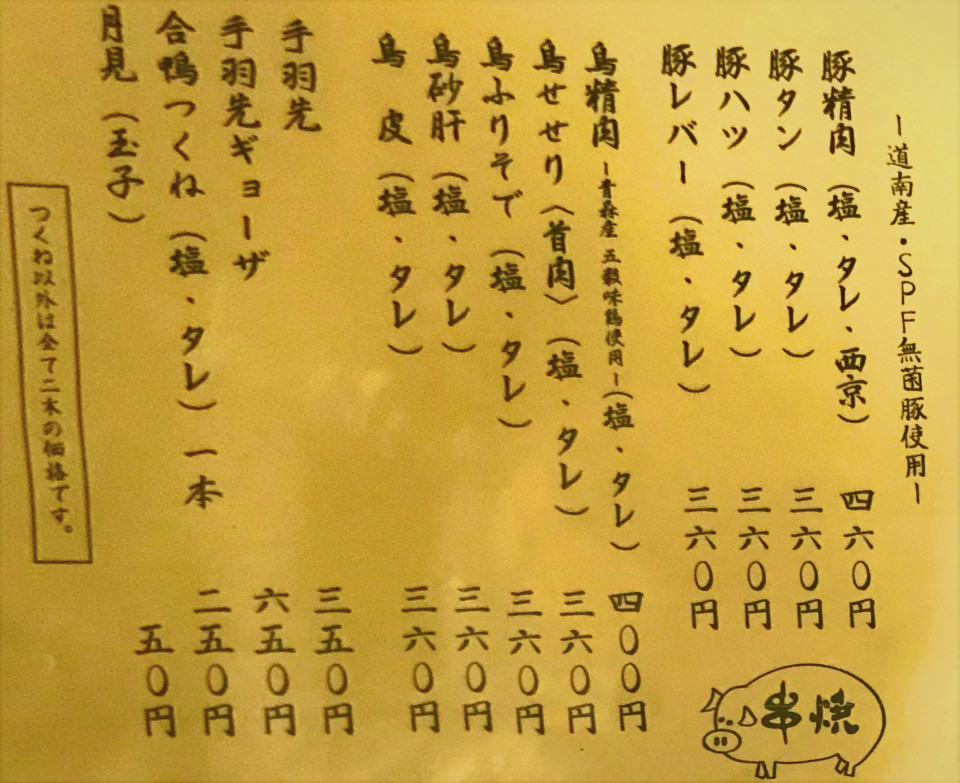 －道南産・SPF無菌豚使用－
豚精肉（塩、タレ、西京）四六〇円
豚タン（塩、タレ）三六〇円
豚ハツ（塩、タレ）三六〇円
豚レバー（塩、タレ）三六〇円
鳥精肉－青森産 五穀味鶏使用－（塩、タレ）四〇〇円
鳥せせり（首肉）（塩、タレ）三六〇円
鳥ふりそで（塩、タレ）三六〇円
鳥砂肝（塩、タレ）三六〇円
鳥皮（塩、タレ）三六〇円
手羽先 三五〇円
手羽先ギョーザ 六五〇円
合鴨つくね（塩、タレ）一本 二五〇円
月見（玉子）五〇円
つくね以外は全て二本の価格です。
串焼